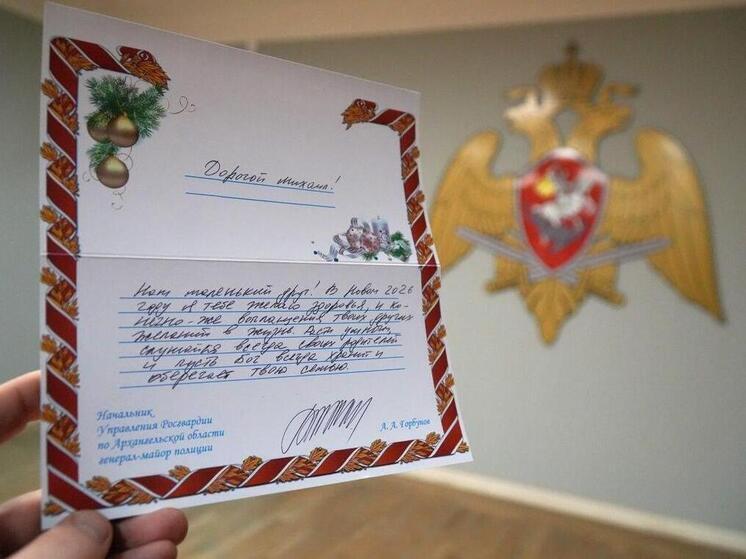 Дорогой Михаил!
Наш маленький друг! В Новом 2026
году я тебе желаю здоровья, и ко-
нечно-же воплощения твоих других
желаний в жизнь. Расти умным,
слушайся всегда своих родителей
и пусть Бог всегда хранит и
оберегает твою семью.
Начальник
Управления Росгвардии
по Архангельской области
генерал-майор полиции
А. А. Горбунов